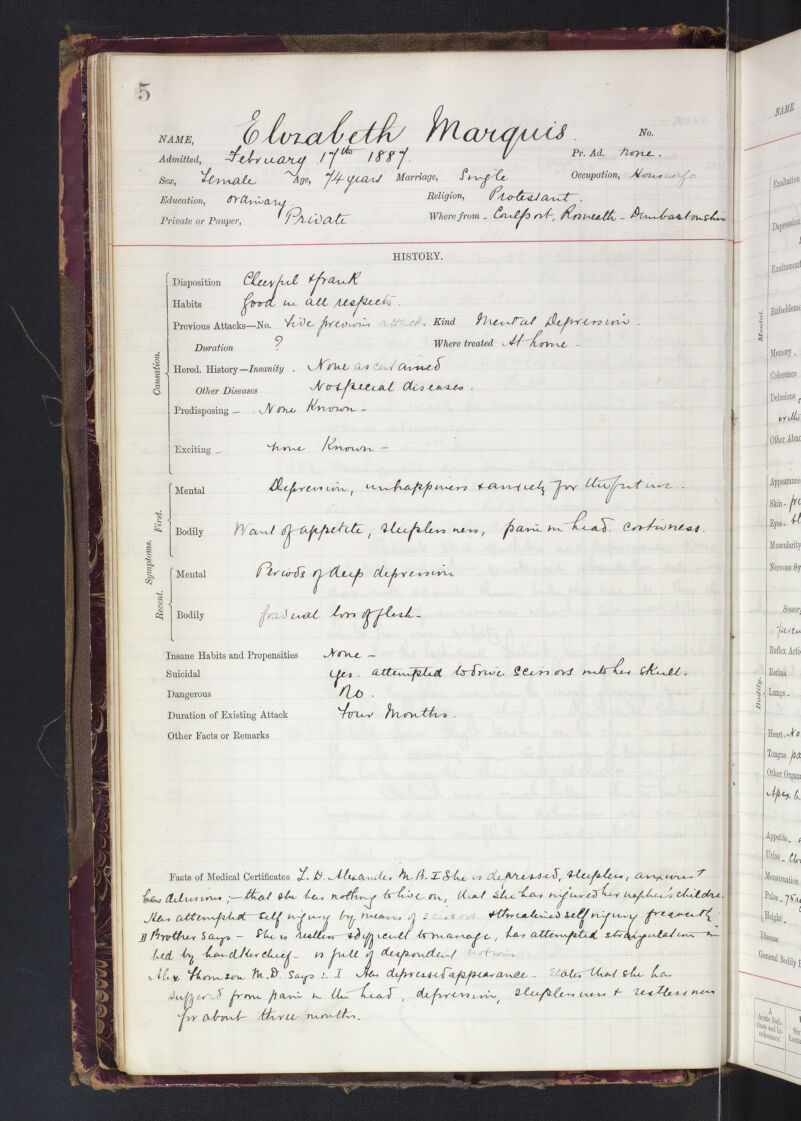 5
NAME, Elizabeth Marquis. No.
Admitted, February 17th 1887. Pr. Ad. none.
Sex, Female Age, 74 years Marriage, Single Occupation, Housewife
Education, ordinary Religion, Protestant.
Private or Pauper, Private Where from - Coulport, Rosneath - Dumbartonshire
HISTORY.
Disposition Cheerful & frank
Habits Good in all respects.
Previous Attacks—No. five previous attacks. Kind Mental Depression.
Duration ? Where treated At home -
Hered. History—Insanity. None ascertained
Other Diseases No special diseases.
Predisposing - None Known -
Exciting - none Known -
Causation.
Mental Depression, unhappiness & anxiety for the future.
Bodily Want of appetite, sleeplessness, pain in head. costiveness.
First.
Mental Periods of deep depression
Bodily Gradual loss of flesh -
Recent.
Symptoms.
Insane Habits and Propensities None -
Suicidal Yes. attempted to drive scissors into her skull.
Dangerous No.
Duration of Existing Attack Four Months.
Other Facts or Remarks
Facts of Medical Certificates L. D. Alexander M.B. I She is depressed, sleepless, anxious &
has delusions; - that she has nothing to live on, that she has injured her nephew's children.
Has attempted self injury by means of scissors & threatened self injury frequently.
II Brother says - She is restless & difficult to manage, has attempted strangulation in
bed by handkerchief - is full of despondent notions
Alex Thomson M.D. says :- I Has depressed appearance - States that she has
suffered from pain in the head, depression, sleeplessness & restlessness
for about three months.
NAME
Exaltation
Depression
Excitement
Enfeebleme
Mental.
Memory -
Coherence
Delusions
Other Abno
Appearance
Skin -
Eyes -
Muscularity
Nervous Sy
Sensor
Reflex Acti
Retina
Lungs -
Bodily.
Heart - No
Tongue
Other Organs
Apex
Appetite -
Urine -
Menstruation
Pulse - 76
Height -
Disease
General Bodily
A
Acute Deli-
rium and In-
coherence.